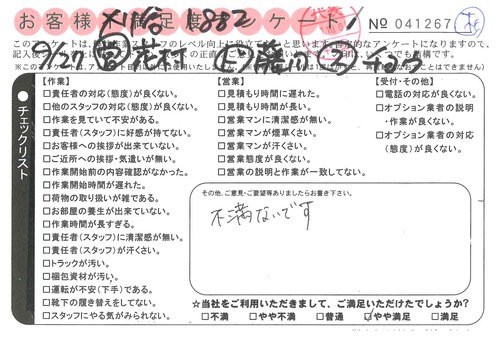 お客様満足度アンケート
No 041267
このアンケートは、
チェックリスト
【作業】
□責任者の対応(態度)が良くない。
□他のスタッフの対応(態度)が良くない。
□作業を見ていて不安がある。
□責任者(スタッフ)に好感が持てない。
□お客様への挨拶が出来ていない。
□ご近所への挨拶・気遣いが無い。
□作業開始前の内容確認がなかった。
□作業開始時間が遅れた。
□荷物の取り扱いが雑である。
□お部屋の養生が出来ていない。
□作業時間が長すぎる。
□責任者(スタッフ)に清潔感が無い。
□責任者(スタッフ)が汗くさい。
□トラックが汚い。
□梱包資材が汚い。
□運転が不安(下手)である。
□靴下の履き替えをしてない。
□スタッフにやる気がみられない。
【営業】
□見積もり時間に遅れた。
□見積もり時間が長い。
□営業マンに清潔感が無い。
□営業マンが煙草くさい。
□営業マンが汗くさい。
□営業態度が良くない。
□営業の説明と作業が一致してない。
【受付・その他】
□電話の対応が良くない。
□オプション業者の説明
・作業が良くない。
□オプション業者の対応
(態度)が良くない。
その他、ご意見・ご要望等ありましたらお書き下さい。
不満ないです
☆当社をご利用いただきまして、ご満足いただけたでしょうか?
□不満 □やや不満 □普通 □やや満足 □満足